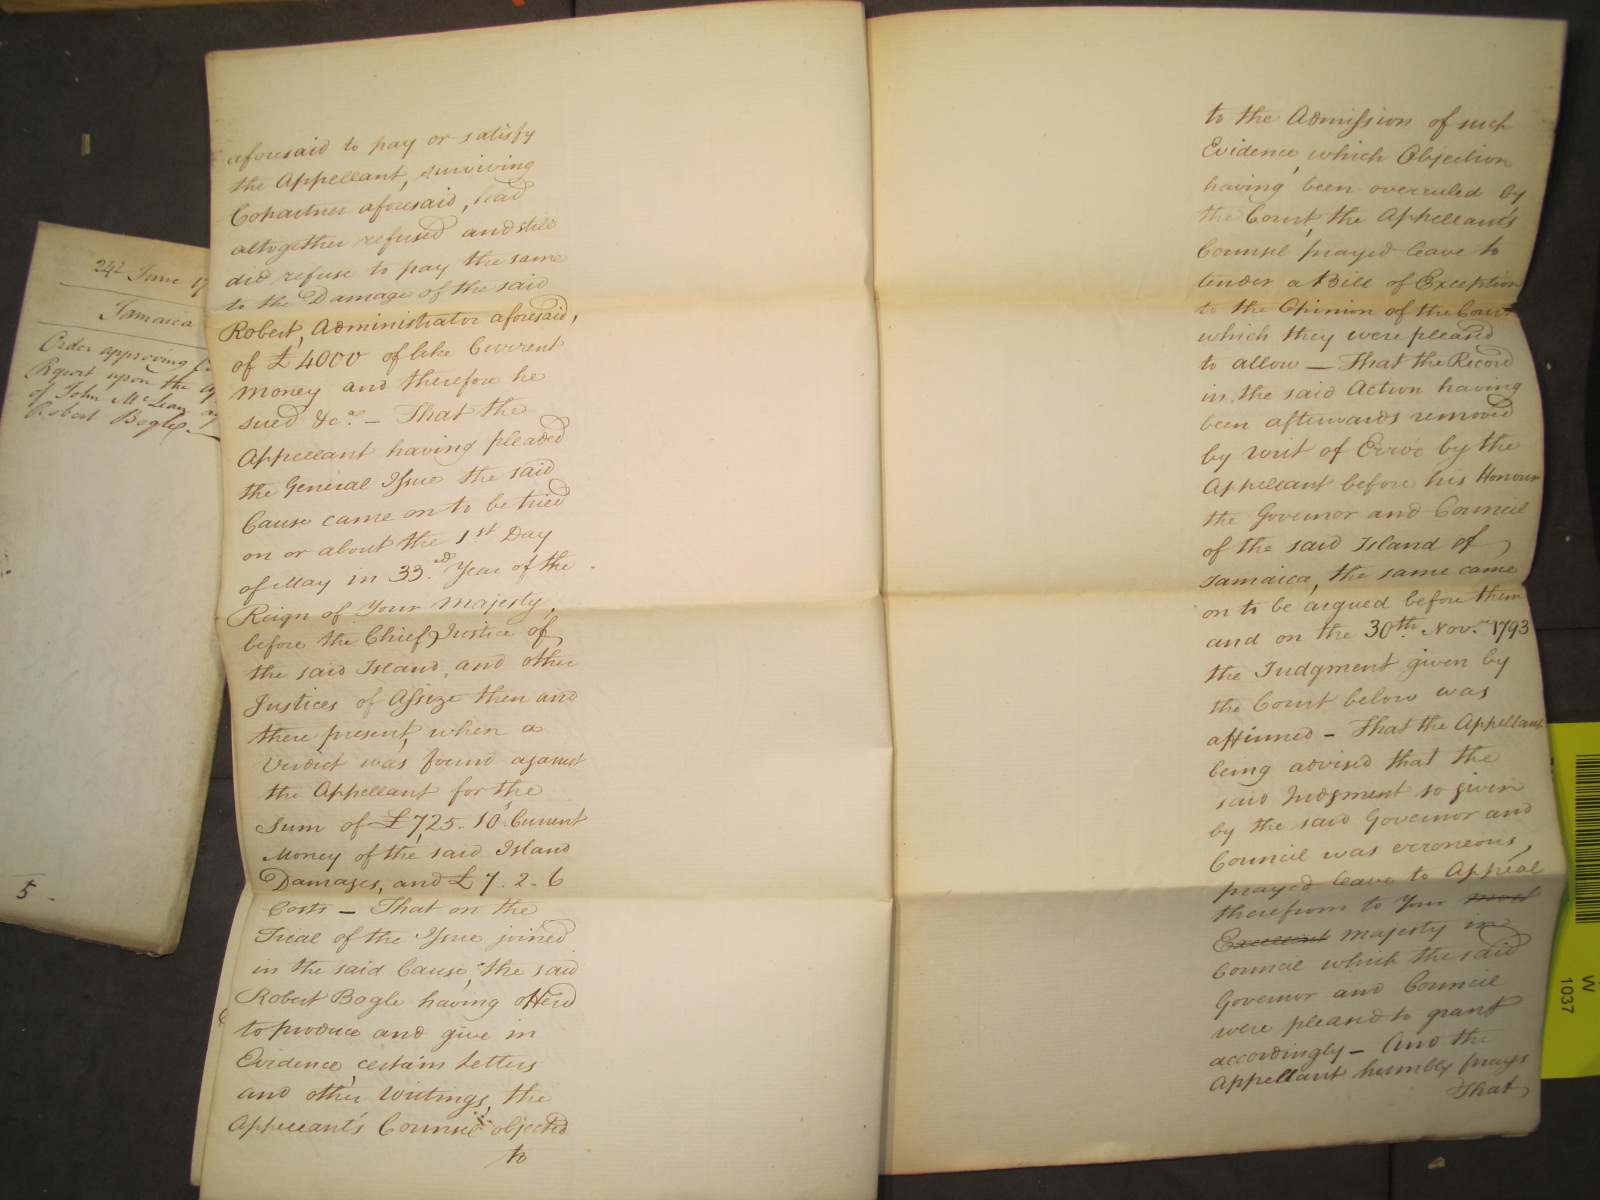 24th June 17
Jamaica
Order approving
Report upon the
of John McLean ag
Robert Bogle.
5
aforesaid to pay or satisfy
the Appellant, surviving
Copartner aforesaid, had
altogether refused and still
did refuse to pay the same
to the Damage of the said
Robert, Administrator aforesaid,
of £4000 of like Current
Money and therefore he
sued &c.a — That the
Appellant having pleaded
the General Issue the said
Cause came on to be tried
on or about the 1st Day
of May in 33.d Year of the
Reign of Your Majesty,
before the Chief Justice of
the said Island, and other
Justices of Assize then and
there present, when a
Verdict was found against
the Appellant for the
Sum of £725.. 10 Current
Money of the said Island
Damages, and £7.. 2.. 6
Costs — That on the
Trial of the Issue joined
in the said Cause, the said
Robert Bogle having offered
to produce and give in
Evidence, certain Letters
and other Writings, the
Appellant's Counsel objected
to
to the Admission of such
Evidence, which Objection
having been overruled by
the Court, the Appellant's
Counsel prayed leave to
tender a Bill of Exception
to the Opinion of the Court
which they were pleased
to allow — That the Record
in the said Action having
been afterwards removed
by Writ of Error by the
Appellant before his Honour
the Governor and Council
of the said Island of
Jamaica, the same came
on to be argued before them
and on the 30th. Nov.r 1793
the Judgment given by
the Court below was
affirmed — That the Appellant
being advised that the
said Judgment so given
by the said Governor and
Council was erroneous,
prayed leave to Appeal
therefrom to Your most
Excellent Majesty in
Council which the said
Governor and Council
were pleased to grant
accordingly — And the
Appellant humbly prays
That
W
1037